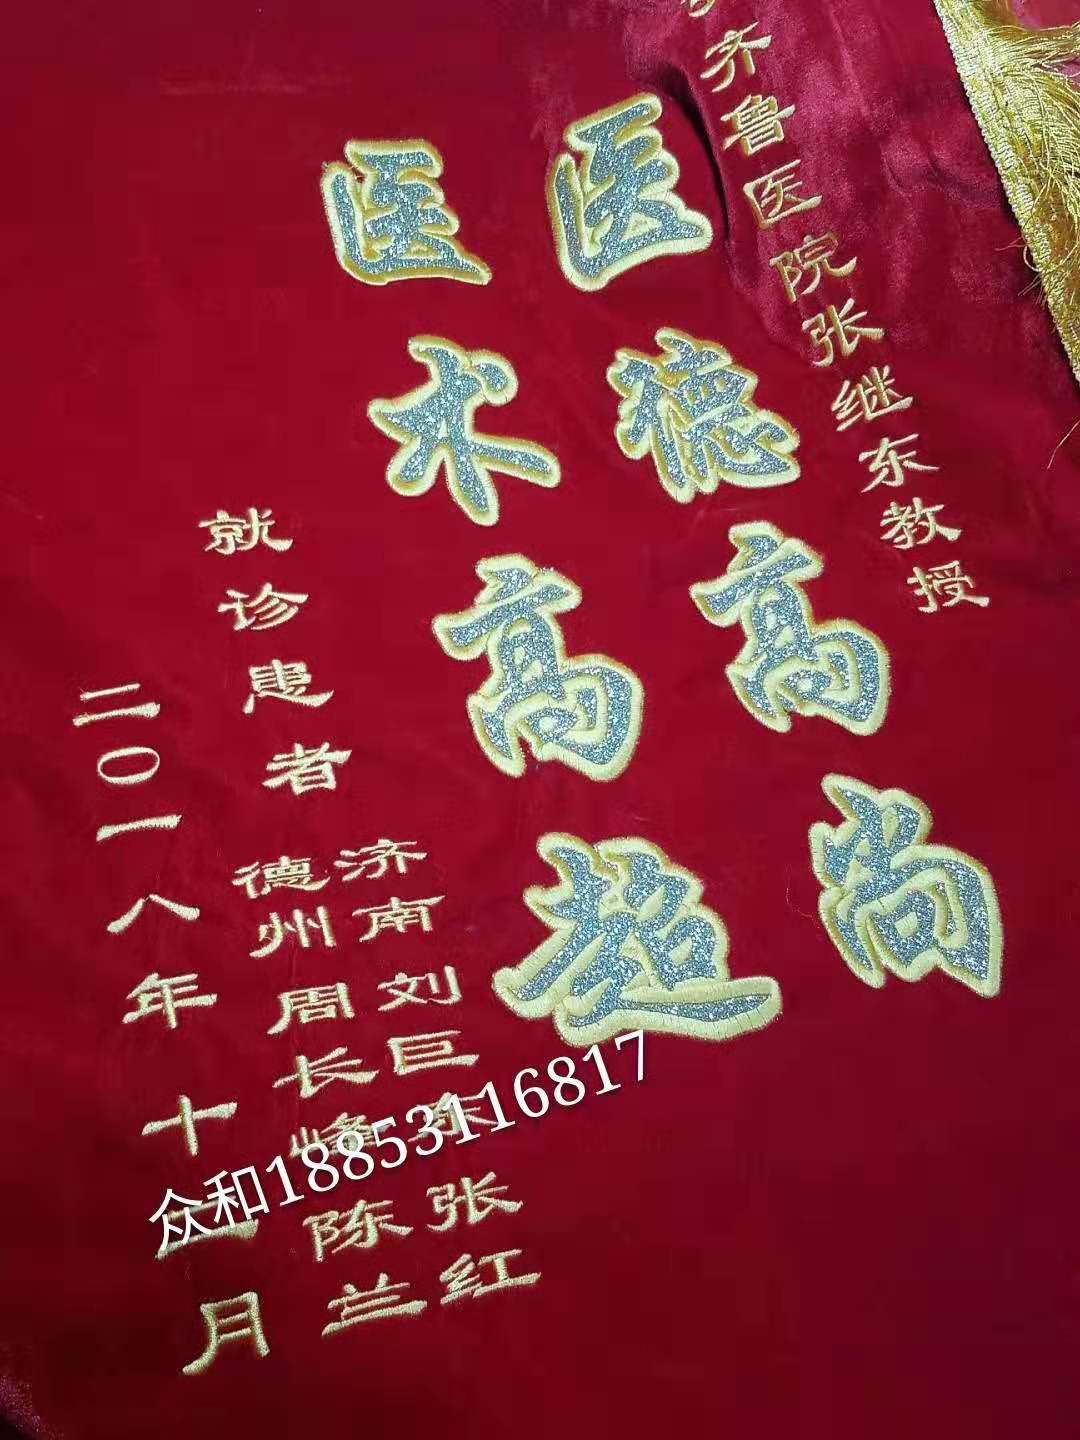 齐鲁医院张继东教授
医德高尚
医术高超
就诊患者
济南刘巨东 张红
德州周长峰 陈兰
二〇一八年十二月
众和18853116817